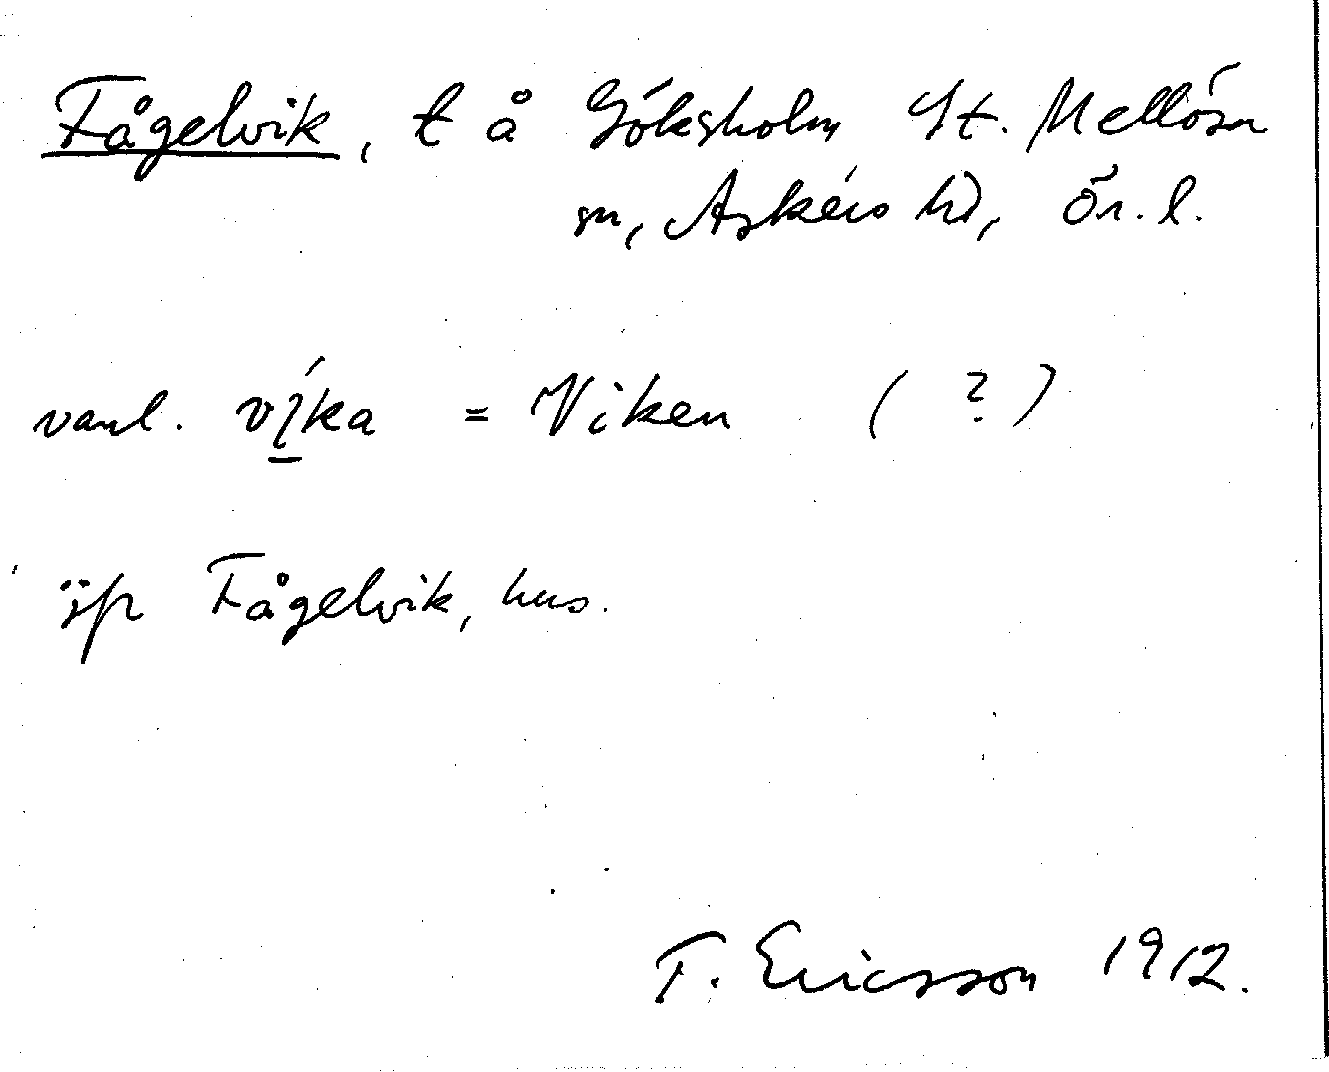 Fågelvik, t å Göksholm St. Mellösa
sn, Askers hd, Ör. l.
vanl. víka = Viken ( ? )
jfr Fågelvik, hus.
F. Ericsson 1912.